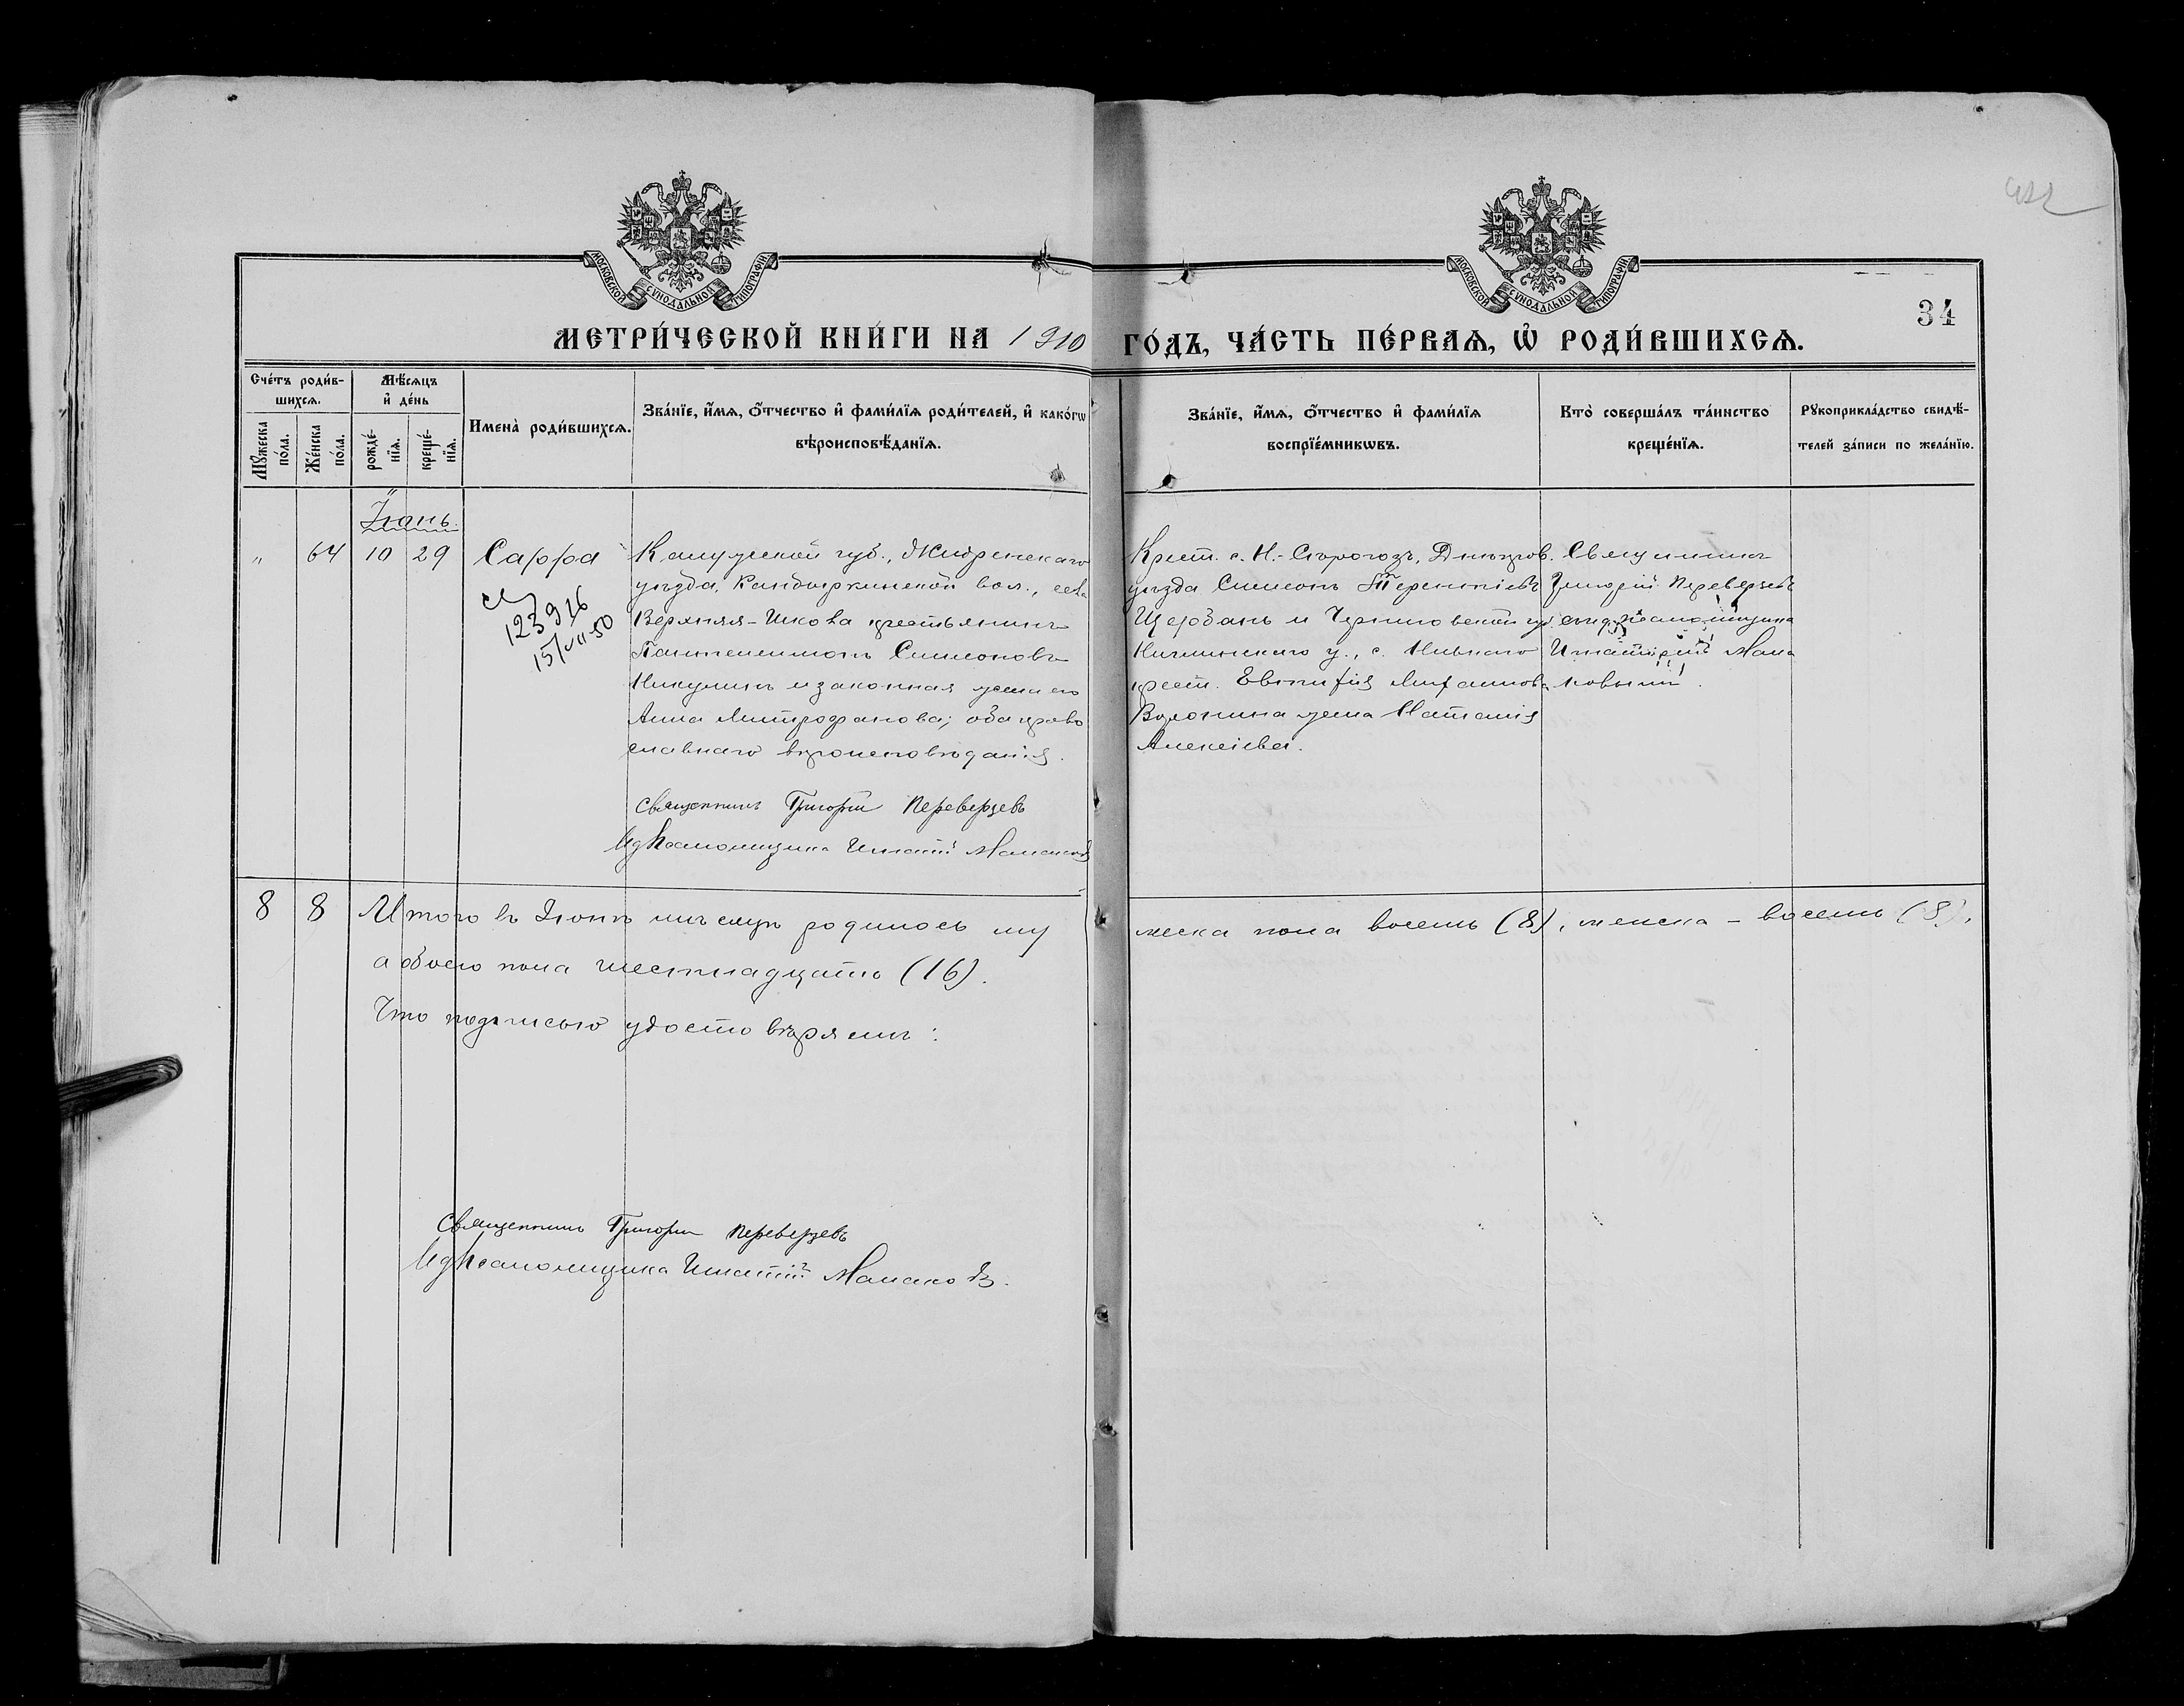 МОСКОВСКОЙ СѴНОДАЛЬНОЙ ТИПОГРАФІИ
МОСКОВСКОЙ СѴНОДАЛЬНОЙ ТИПОГРАФІИ
34
МЕТРИ́ЧЕСКОЙ КНИ́ГИ НА 1910 ГО́ДЪ, ЧА́СТЬ ПЕ́РВАѦ, Ѡ҆ РОДИ́ВШИХСѦ.
Сче́тъ роди́в-
шихсѧ.
Мꙋ́жеска по́ла.
Же́нска по́ла.
Мѣ́сѧцъ
и҆ де́нь
рожде́-
нїѧ.
креще́-
нїѧ.
Имена̀ роди́вшихсѧ.
Зва́нїе, и҆́мѧ, ѻ҆́тчество и҆ фами́лїѧ роди́телей, и҆ како́гѡ
вѣроисповѣ́данїѧ.
Зва́нїе, и҆́мѧ, ѻ҆́тчество и҆ фами́лїѧ
воспрїе́мникѡвъ.
Кто̀ соверша́лъ та́инство
креще́нїѧ.
Рꙋкоприкла́дство свидѣ́-
телей за́писи по жела́нїю.
Іюнь.
" 64 10 29 Сарра
123926
15/VII-50
Калужской губ., Жиздринскаго
уѣзда, вол., села
Верхняя-Шкова крестьянинъ
Пантелеимонъ Симеоновъ
Никулинъ и законная жена его
Анна Митрофанова; оба право
славнаго вѣроисповѣданія.
Священникъ Григорій Переверзевъ
И д Псаломщика Игнатій Манаковъ
Крест. с. Н.-Сѣрогозъ, Днѣпров.
уѣзда Симеонъ Терентіевъ
Щербань и Черниговской губ.
у., с.
крест. Евтихія Митрофанова
Воронина жена Наталія
Алексіева.
Священникъ
Григорій Переверзевъ
съ и.д. псаломщика
Игнатіемъ Мана
ковымъ.
8 8 Итого въ Іюнѣ мѣсяцѣ родилось му
жеска пола восемь (8), женска – восемь (8),
а обоего пола шестнадцать (16).
Что подписью удостовѣряемъ:
Священникъ Григорій Переверзевъ
И д Псаломщика Игнатій Манаковъ.